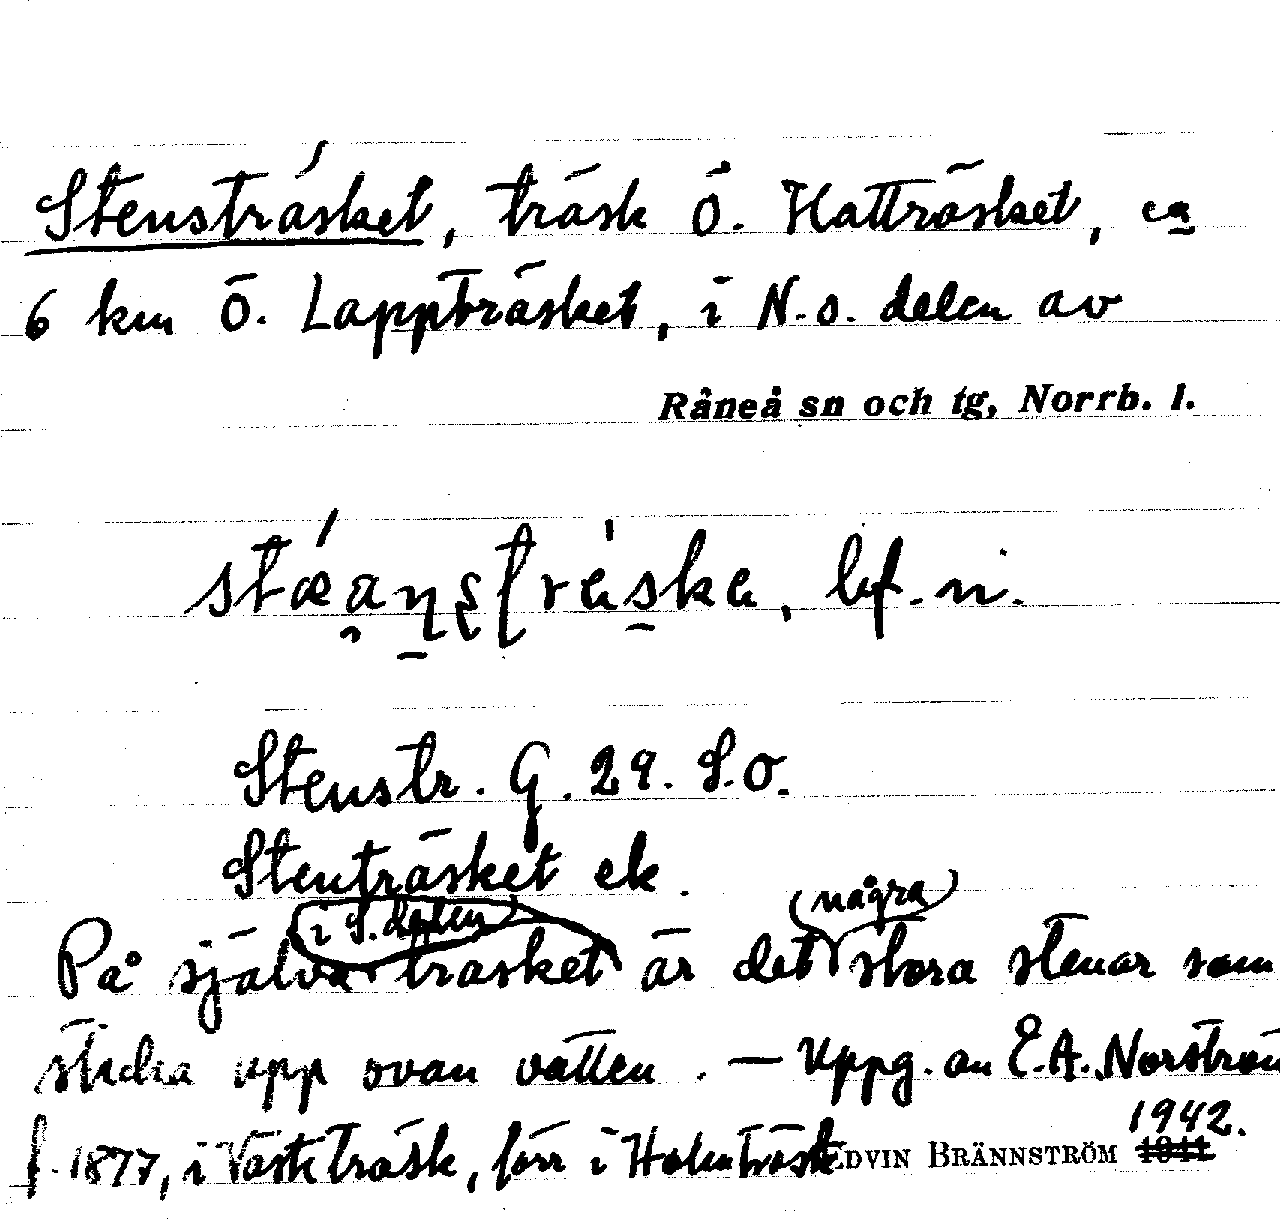 Stensträsket, träsk Ö. Hatträsket, ca
6 km Ö. Lappträsket, i N.o. delen av
Råneå sn och tg, Norrb. l.
bf. n.
Stenstr. G. 29. S.O.
Stenträsket ek.
(i S. delen) (några)
På själva träsket är det stora stenar som
sticka upp ovan vatten. — Uppg. av E.A. Norström
1942.
f. 1877, i Västeträsk, förr i Holmträsk EDVIN BRÄNNSTRÖM 1941